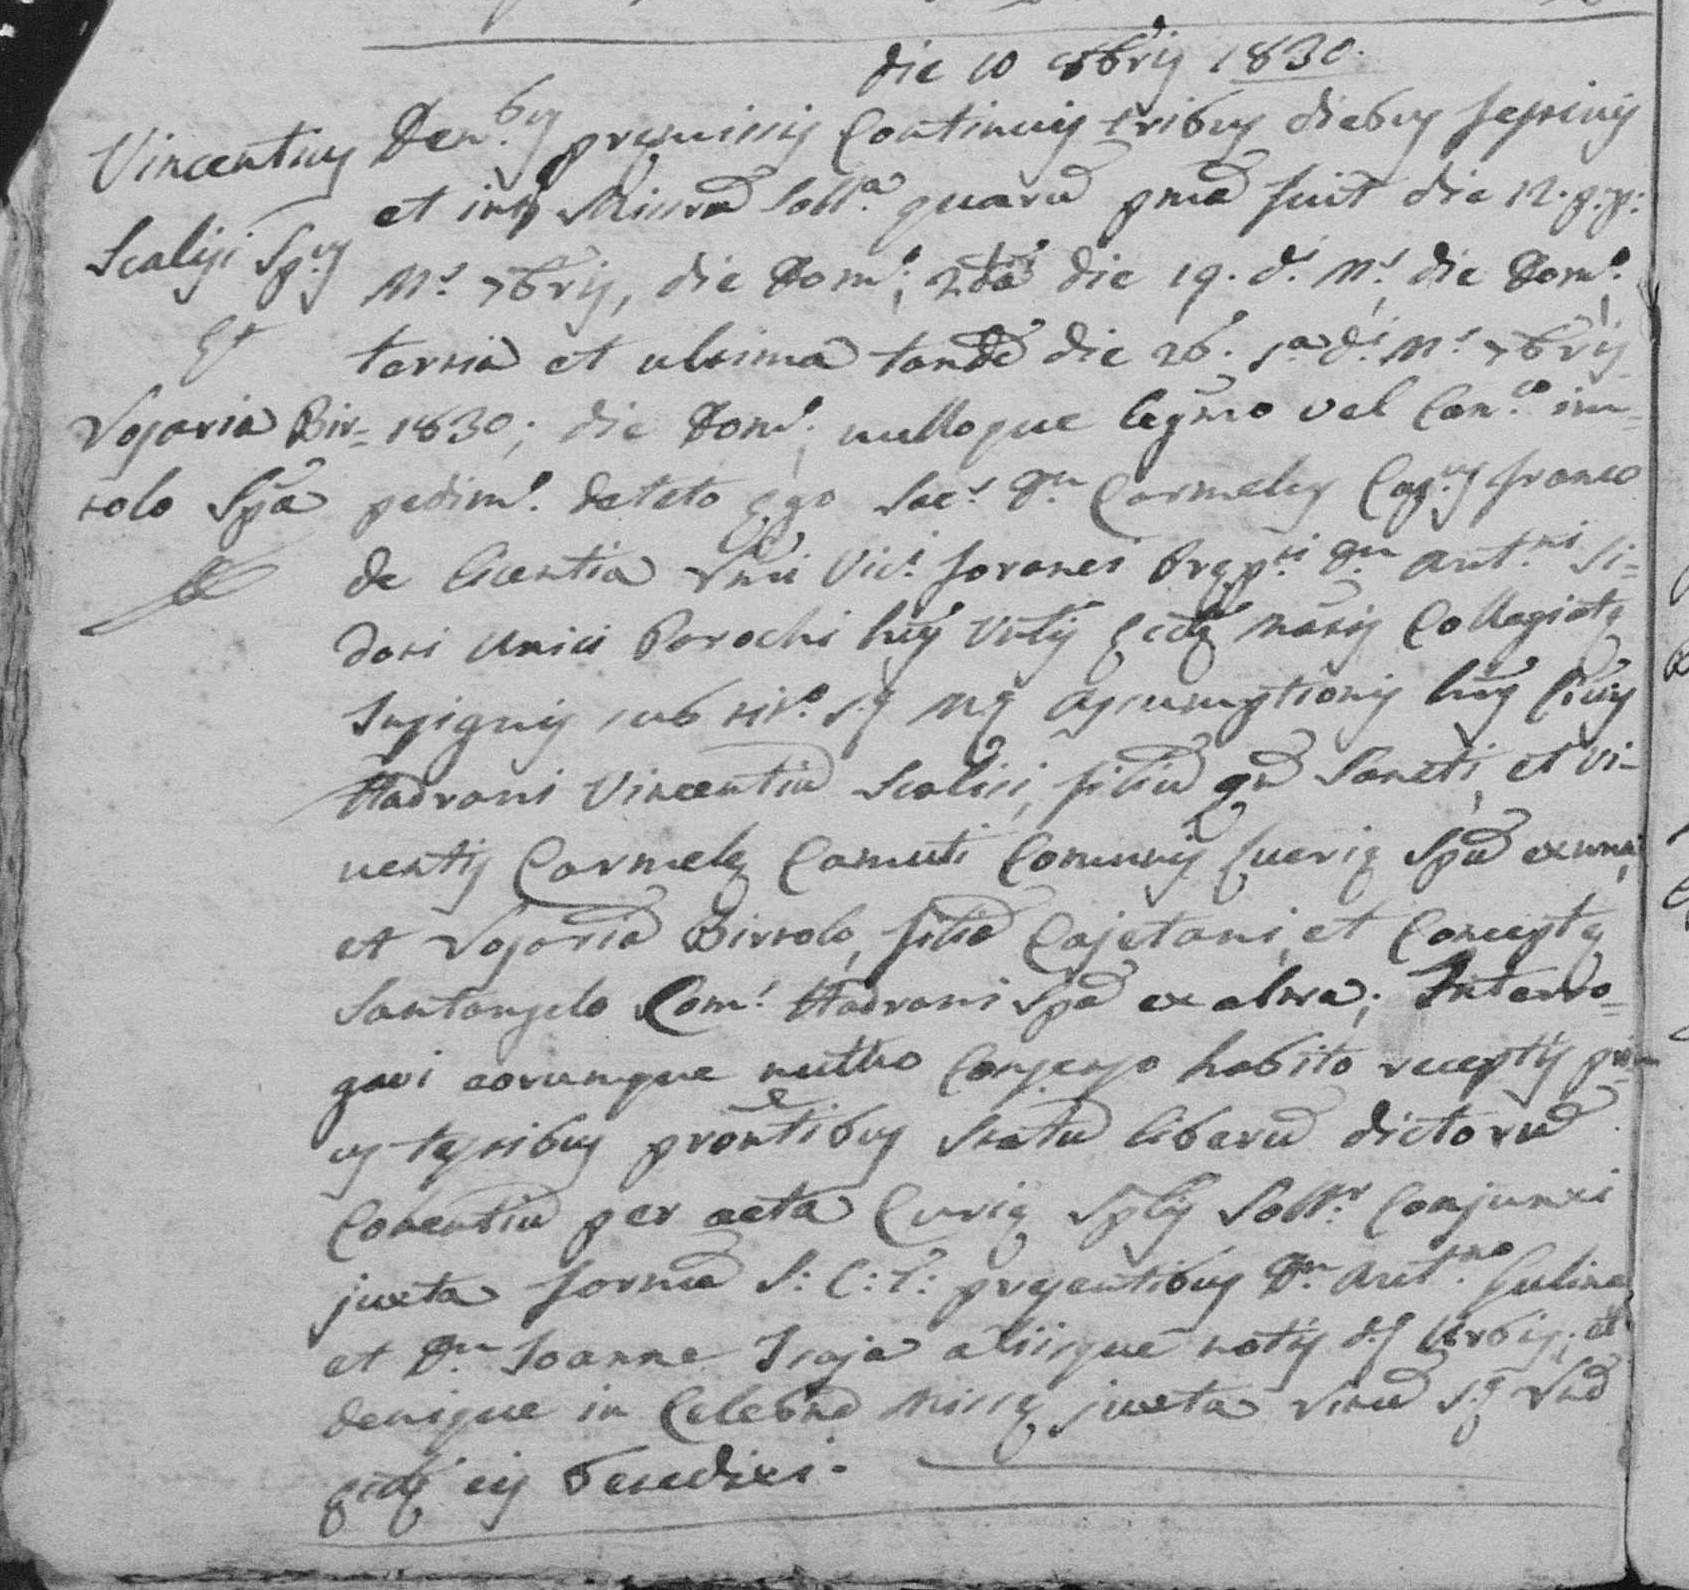 die 10 8bris 1830.
Vincentius
Scalisi Sp.us
Et
Rosaria Bir=
tolo Spã
Den.bus premissis continuis tribus diebus festivis
et int. Missarũ soll.a quarũ pma fuit die 12. p.p:
M.s 7bris, die Dom.o; 2da die 19. d.i M.s, die Dom.o,
tertia et ultima tandẽ die 26. s.a d.i M.s 7bris
1830; die Dom.o, nulloque legmo vel Can.co im=
pedim.o deteto Ego Sac.s D.n Carmelus Cap.us Franco
de licentia Rmi Vic.i foranei Prep.ti D.n Ant.ni Si=
doti Unici Parochi hus Vnlis Eccle Matris Collegiate
Insignis sub tit.o S.e M.e Assumptionis hus Civis
Hadrani Vincentiũ Scalisi, filiũ qm Sancti, et Vi=
ventis Carmele Camuti Comunis Cuerie Spũ ex una;
et Rosariã Birtolo, filiã Cajetani, et Concepte
Santangelo Com.s Hadrani Spã ex altra; Interro=
gavi eorumque mutuo Consenso habito receptis pri=
us testibus prontibus Statũ liberũ dictorũ
Cohentiũ per acta Curie Splis Soll.r Conjunxi
juxta formã S: C: T: presentibus D.n Ant.no Gulino
et D.n Joanne Isaja aliisque notis d.e Urbis; et
denique in Celebrne Misse juxta ritũ S.e Rnã
Eccle eis benedixi.